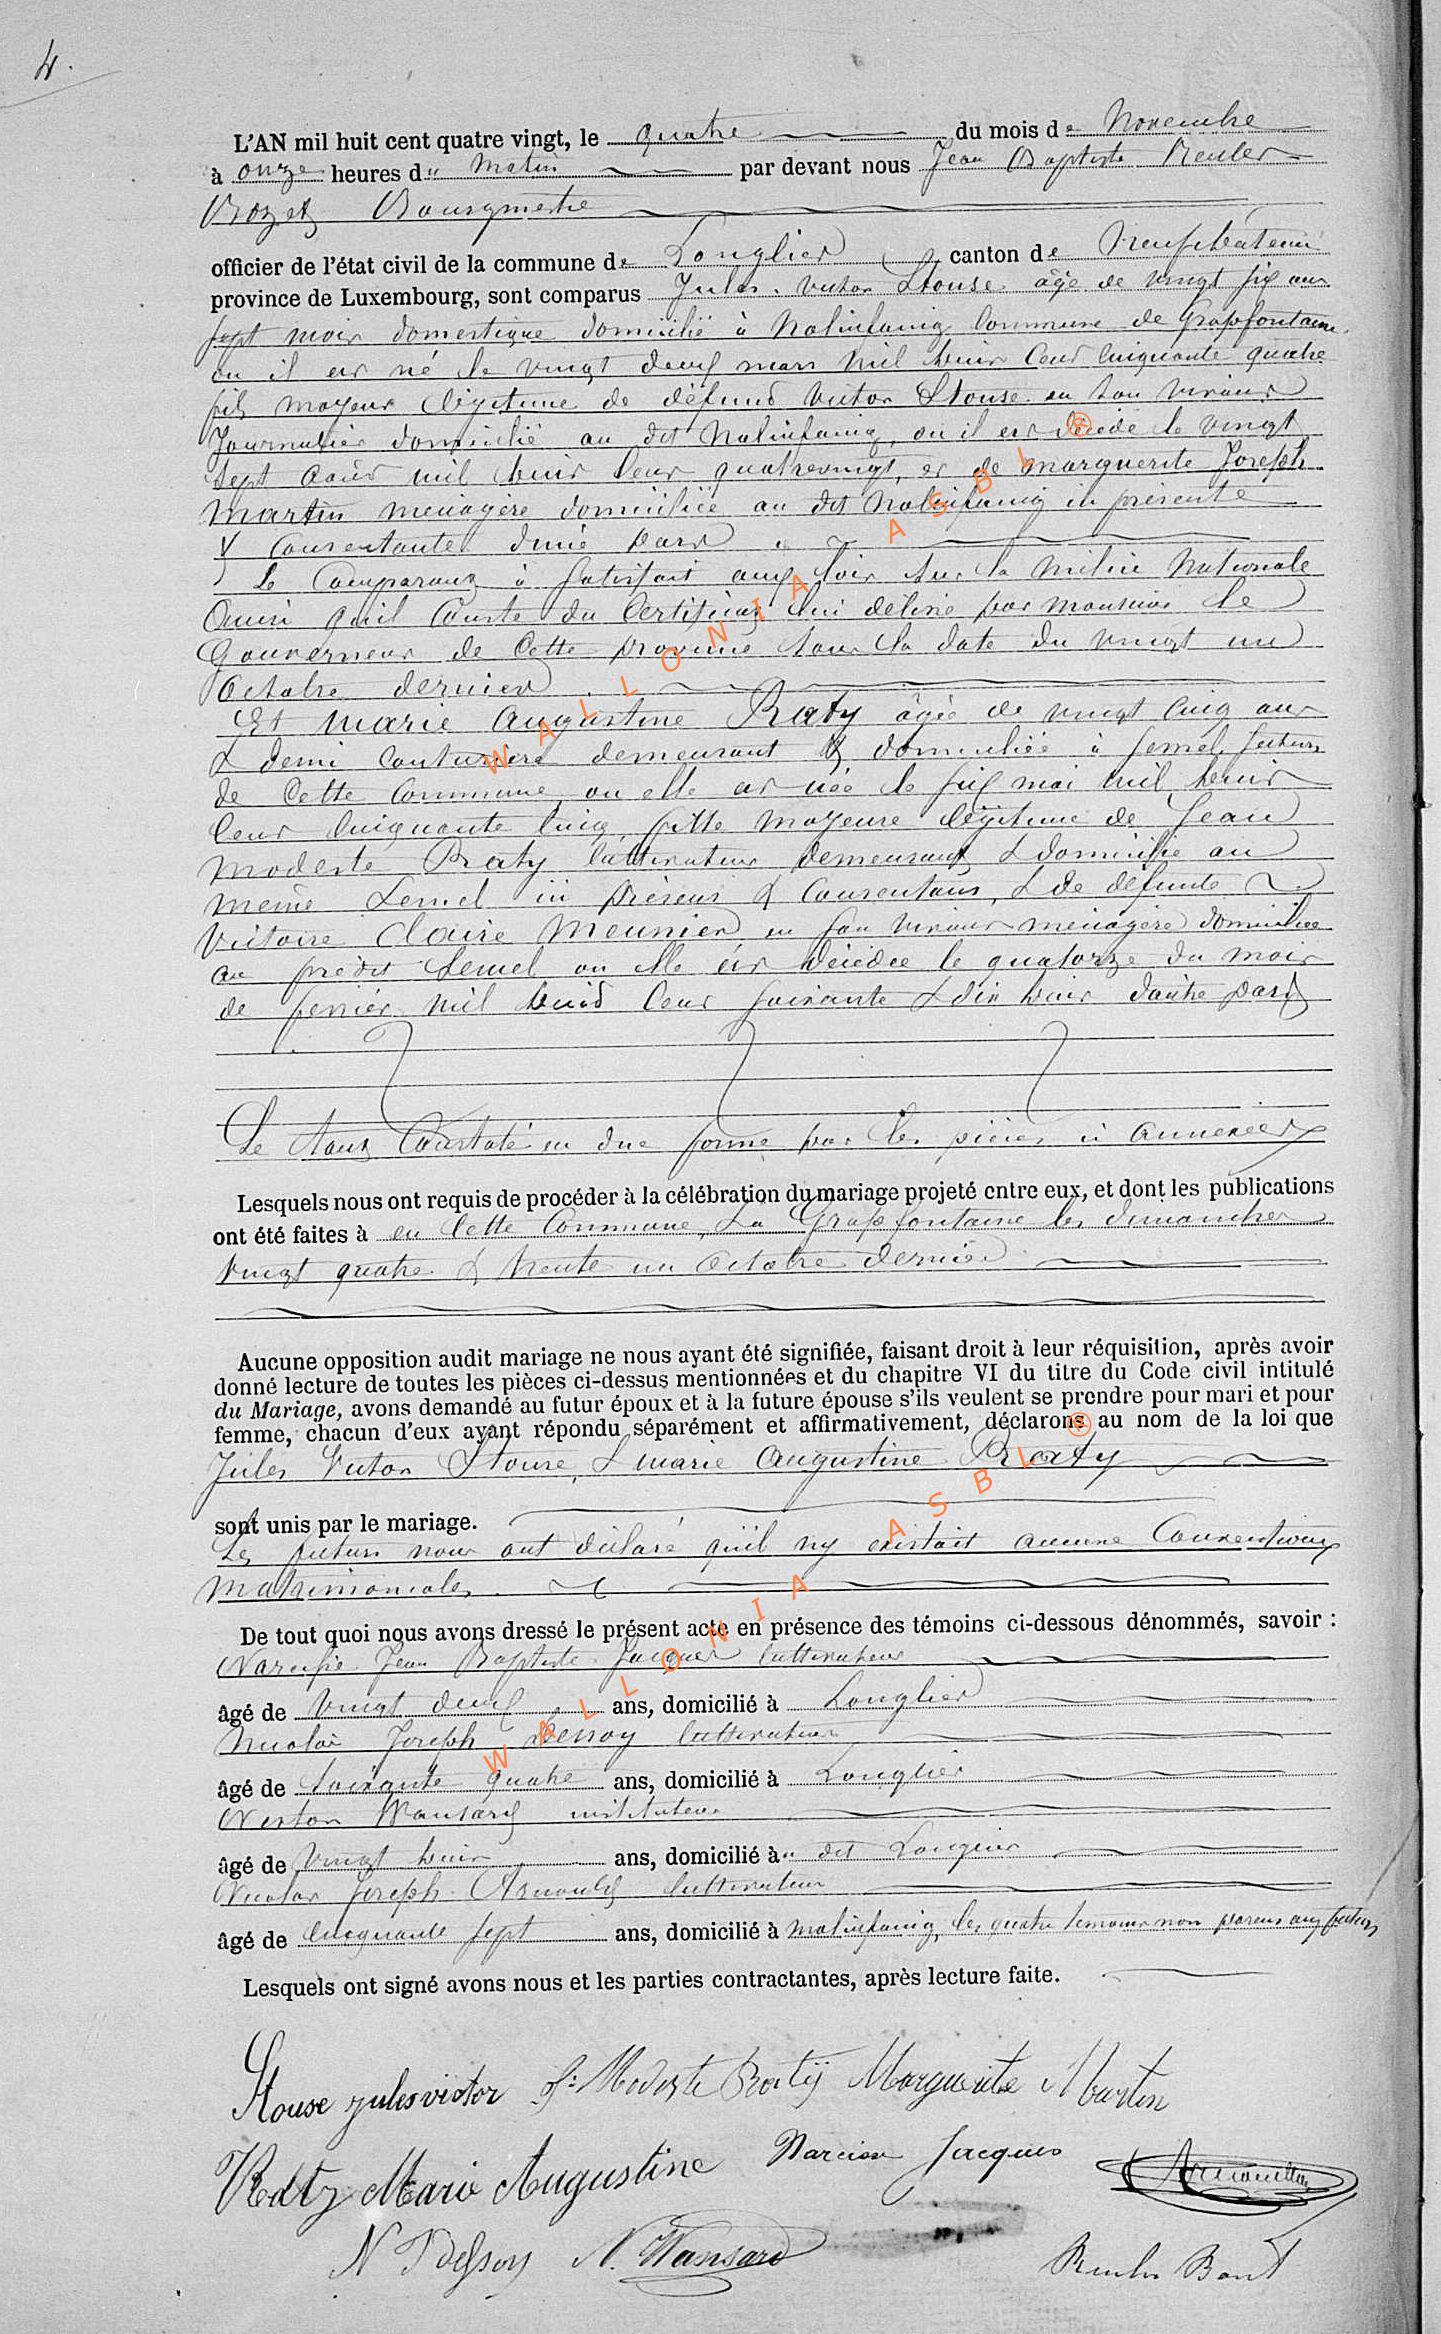 4.
L'AN mil huit cent quatre vingt, le quatre du mois de Novembre
à onze heures du Matin par devant nous Jean Baptiste Reuler
Rozet Bourgmestre
officier de l'état civil de la commune de Longlier canton de Neufchâteau
province de Luxembourg, sont comparus Jules Victor Stouse âgé de vingt six ans
sept mois domestique domicilié à Malinfaing Commune de Grapfontaine
ou il est né le vingt deux mars mil huit Cent Cinquante quatre
fils majeur légitime de défunt Victor Stouse en son vivant
Journalier domicilié au dit Malinfaing, où il est décédé le vingt
sept août mil huit Cent quatrevingt, et de Marguerite Joseph
Martin ménagère domiciliée au dit Malinfaing ici présente
& Consentante d'une part
Le Comparant à satisfait aux lois sur la Milice Nationale
Ainsi qu'il Conste du Certificat lui délivré par monsieur le
Gouverneur de Cette province sous la date du vingt un
Octobre dernier
Et Marie Augustine Raty âgée de vingt Cinq ans
& demi Couturière demeurant & domiciliée à Semel section
de Cette Commune ou elle est née le six mai mil huit
Cent Cinquante Cinq, fille Majeure légitime de Jean
Modeste Raty Cultivateur demeurant & domicilié au
même Semel ici Présent & Consentant, & de défunte
Victoire Claire Meunier en son vivant ménagère domiciliée
au prédit Semel ou elle est décédée le quatorze du mois
de février mil huit Cent soixante & dix huit d'autre part
Le tout Constaté en due forme par les pièces ci annexées
Lesquels nous ont requis de procéder à la célébration du mariage projeté entre eux, et dont les publications
ont été faites à en Cette Commune, & a Grapfontaine les dimanches
Vingt quatre & trente un Octobre dernier
Aucune opposition audit mariage ne nous ayant été signifiée, faisant droit à leur réquisition, après avoir
donné lecture de toutes les pièces ci-dessus mentionnées et du chapitre VI du titre du Code civil intitulé
du Mariage, avons demandé au futur époux et à la future épouse s'ils veulent se prendre pour mari et pour
femme, chacun d'eux ayant répondu séparément et affirmativement, déclarons au nom de la loi que
Jules Victor Stouse, & Marie Augustine Raty
sont unis par le mariage.
Les futurs nous ont déclaré qu'il n'y existait aucune Conventions
Matrimoniales.
De tout quoi nous avons dressé le présent acte en présence des témoins ci-dessous dénommés, savoir :
Narcisse Jean Baptiste Jacques Cultivateur
âgé de Vingt deux ans, domicilié à Longlier
Nicolas Joseph Dessoy Cultivateur
âgé de Soixante quatre ans, domicilié à Longlier
Nestor Wansard instituteur
âgé de Vingt huit ans, domicilié au dit Longlier
Nicolas Joseph Arnould Cultivateur
âgé de Cinquante sept ans, domicilié à Malinfaing, les quatre témoins non parens aux futurs
Lesquels ont signé avons nous et les parties contractantes, après lecture faite.
Stouse jules victor J: Modeste Raty Marguerite Martin
Raty Marie Augustine Narcisse Jacques
N J dessoy N. Wansard
WALLONIA ASBL ®
WALLONIA ASBL ®